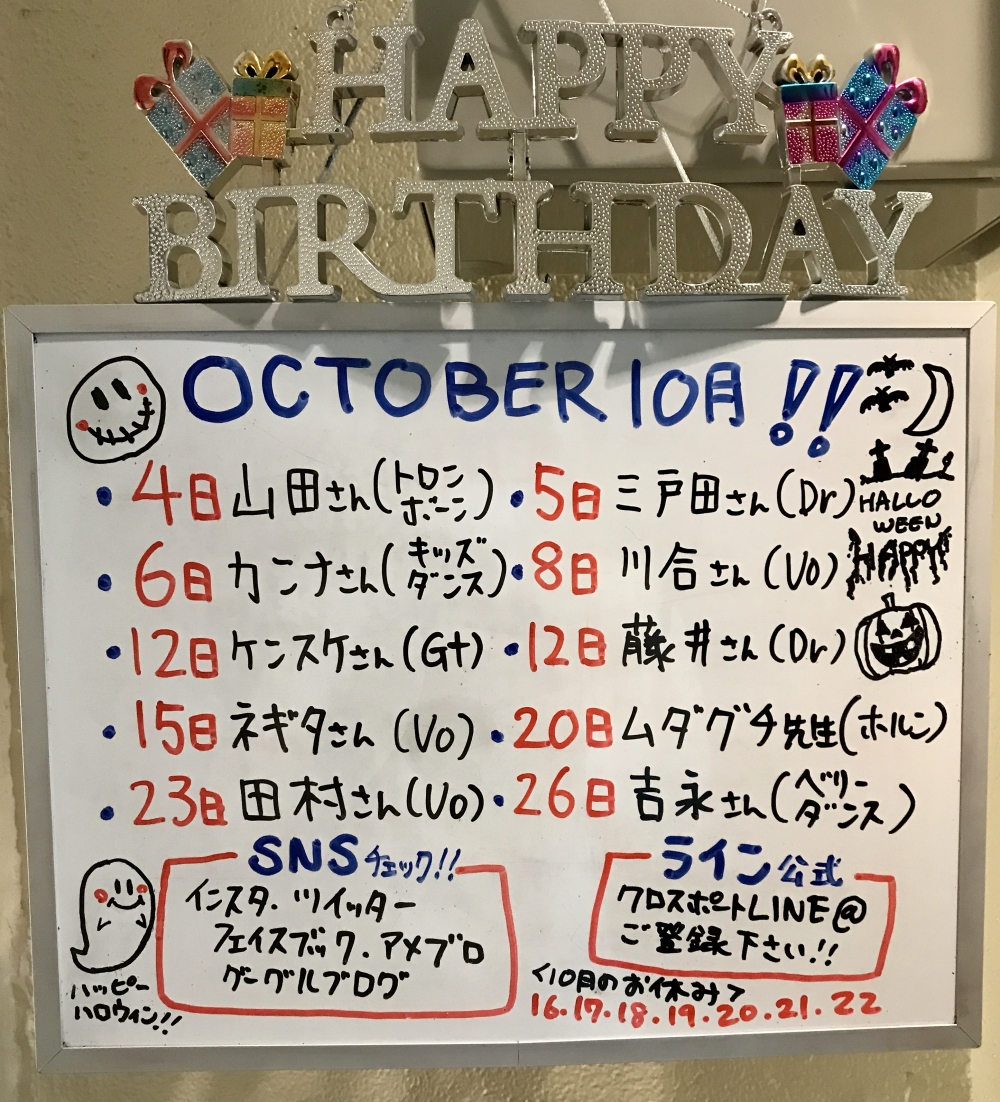 HAPPY
BIRTHDAY
OCTOBER 10月!!
・4日 山田さん(トロンボーン)
・5日 三戸田さん(Dr)
HALLO
WEEN
HAPPY
・6日 カンナさん(キッズダンス)
・8日 川合さん(Vo)
・12日 ケンスケさん(Gt)
・12日 藤井さん(Dr)
・15日 ネギタさん(Vo)
・20日 ムダグチ先生(ホルン)
・23日 田村さん(Vo)
・26日 吉永さん(ベリーダンス)
SNSチェック!!
インスタ.ツイッター
フェイスブック.アメブロ
グーグルブログ
ライン公式
クロスポートLINE@
ご登録下さい!!
ハッピー
ハロウィン!!
<10月のお休み>
16.17.18.19.20.21.22